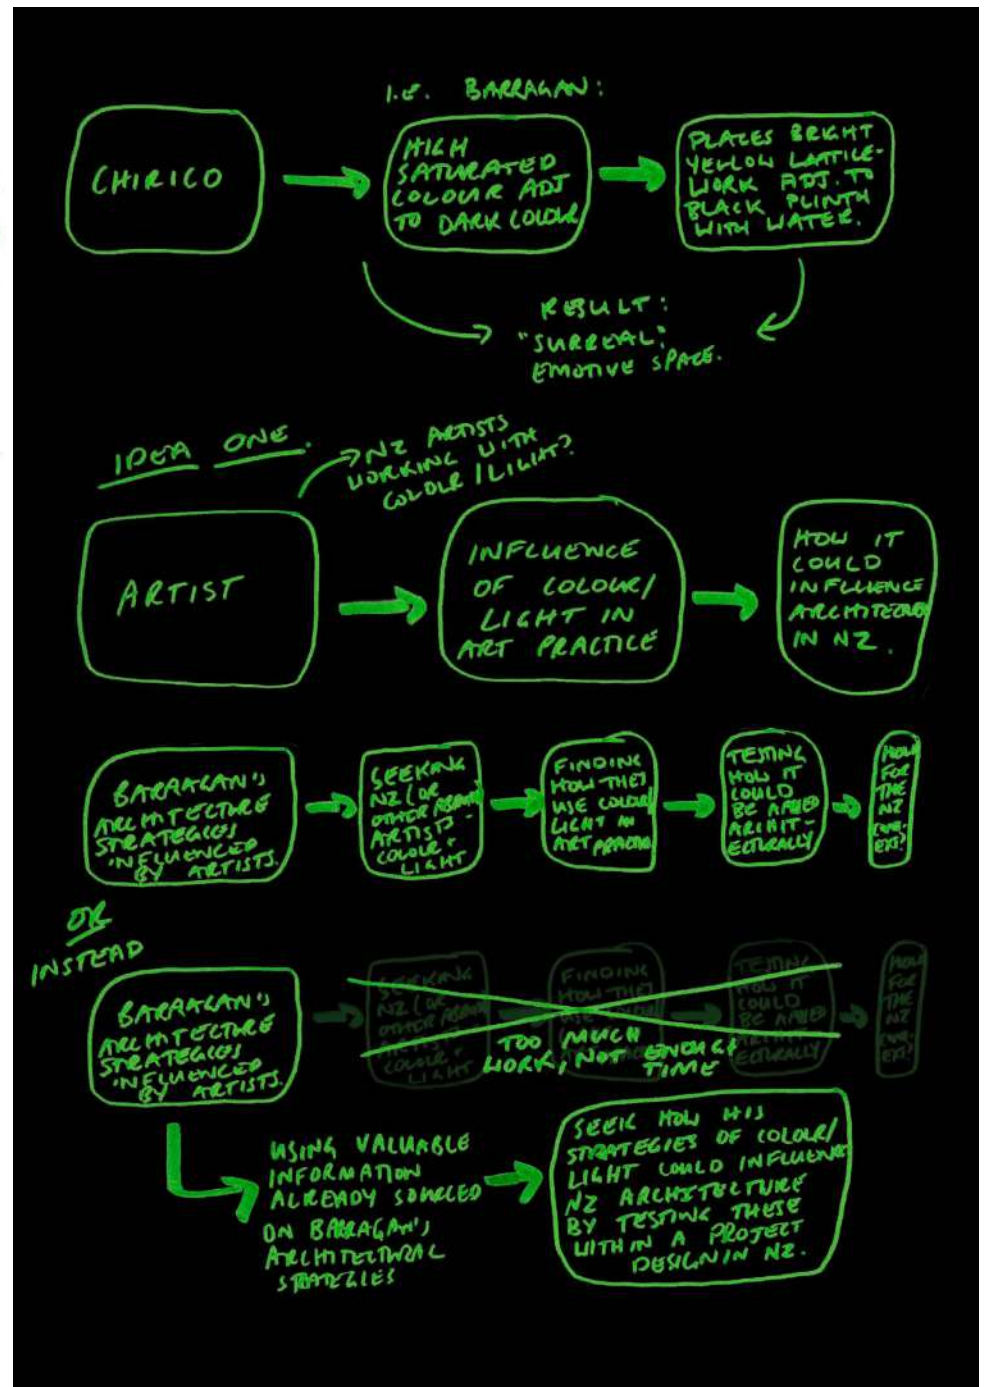 I.E. BARRAGAN:
CHIRICO
HIGH
SATURATED
COLOUR ADJ
TO DARK COLOUR
PLACES BRIGHT
YELLOW LATTICE-
WORK ADJ. TO
BLACK PLINTH
WITH WATER.
RESULT:
"SURREAL",
EMOTIVE SPACE.
IDEA ONE.
NZ ARTISTS
WORKING WITH
COLOUR/LIGHT?
ARTIST
INFLUENCE
OF COLOUR/
LIGHT IN
ART PRACTICE
HOW IT
COULD
INFLUENCE
ARCHITECTURE
IN NZ.
BARRAGAN'S
ARCHITECTURE
STRATEGIES
INFLUENCED
BY ARTISTS.
SEEKING
NZ (OR
OTHER
ARTISTS -
COLOUR +
LIGHT
FINDING
HOW THEY
USE COLOUR/
LIGHT IN
ART PRACTICE
TESTING
HOW IT
COULD
BE
ARCHIT-
ECTURALLY
HOW
FOR
THE
NZ
CON-
EXT?
OR
INSTEAD
BARRAGAN'S
ARCHITECTURE
STRATEGIES
INFLUENCED
BY ARTISTS.
SEEKING
NZ (OR
OTHER
ARTISTS -
COLOUR +
LIGHT
FINDING
HOW THEY
USE COLOUR/
TESTING
HOW IT
COULD
BE
ECTURALLY
HOW
FOR
THE
NZ
CON-
EXT?
TOO MUCH
WORK, NOT ENOUGH
TIME
USING VALUABLE
INFORMATION
ALREADY SOURCED
ON BARRAGAN'S
ARCHITECTURAL
STRATEGIES
SEEK HOW HIS
STRATEGIES OF COLOUR/
LIGHT COULD INFLUENCE
NZ ARCHITECTURE
BY TESTING THESE
WITHIN A PROJECT
DESIGN IN NZ.